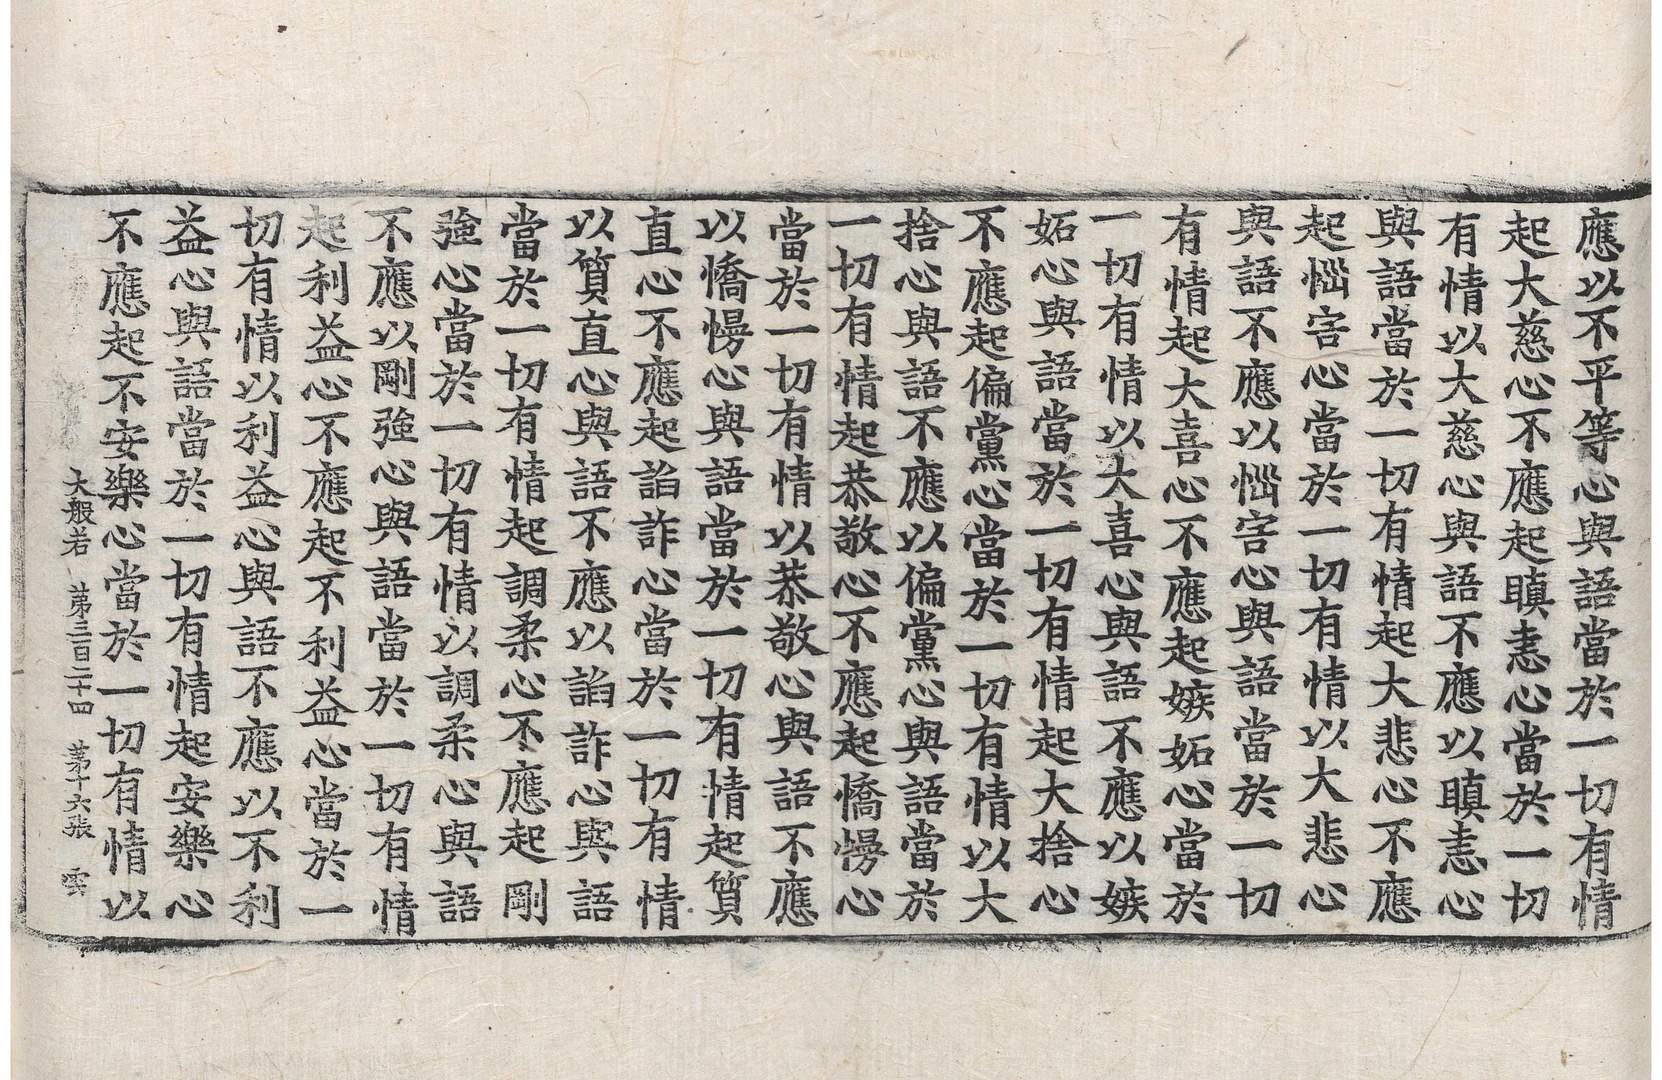 應以不平等心與語當於一切有情
起大慈心不應起瞋恚心當於一切
有情以大慈心與語不應以瞋恚心
與語當於一切有情起大悲心不應
起惱害心當於一切有情以大悲心
與語不應以惱害心與語當於一切
有情起大喜心不應起嫉妬心當於
一切有情以大喜心與語不應以嫉
妬心與語當於一切有情起大捨心
不應起偏黨心當於一切有情以大
捨心與語不應以偏黨心與語當於
一切有情起恭敬心不應起憍慢心
當於一切有情以恭敬心與語不應
以憍慢心與語當於一切有情起質
直心不應起諂詐心當於一切有情
以質直心與語不應以諂詐心與語
當於一切有情起調柔心不應起剛
強心當於一切有情以調柔心與語
不應以剛強心與語當於一切有情
起利益心不應起不利益心當於一
切有情以利益心與語不應以不利
益心與語當於一切有情起安樂心
不應起不安樂心當於一切有情以
大般若 第三百二十四 第十六張 雲